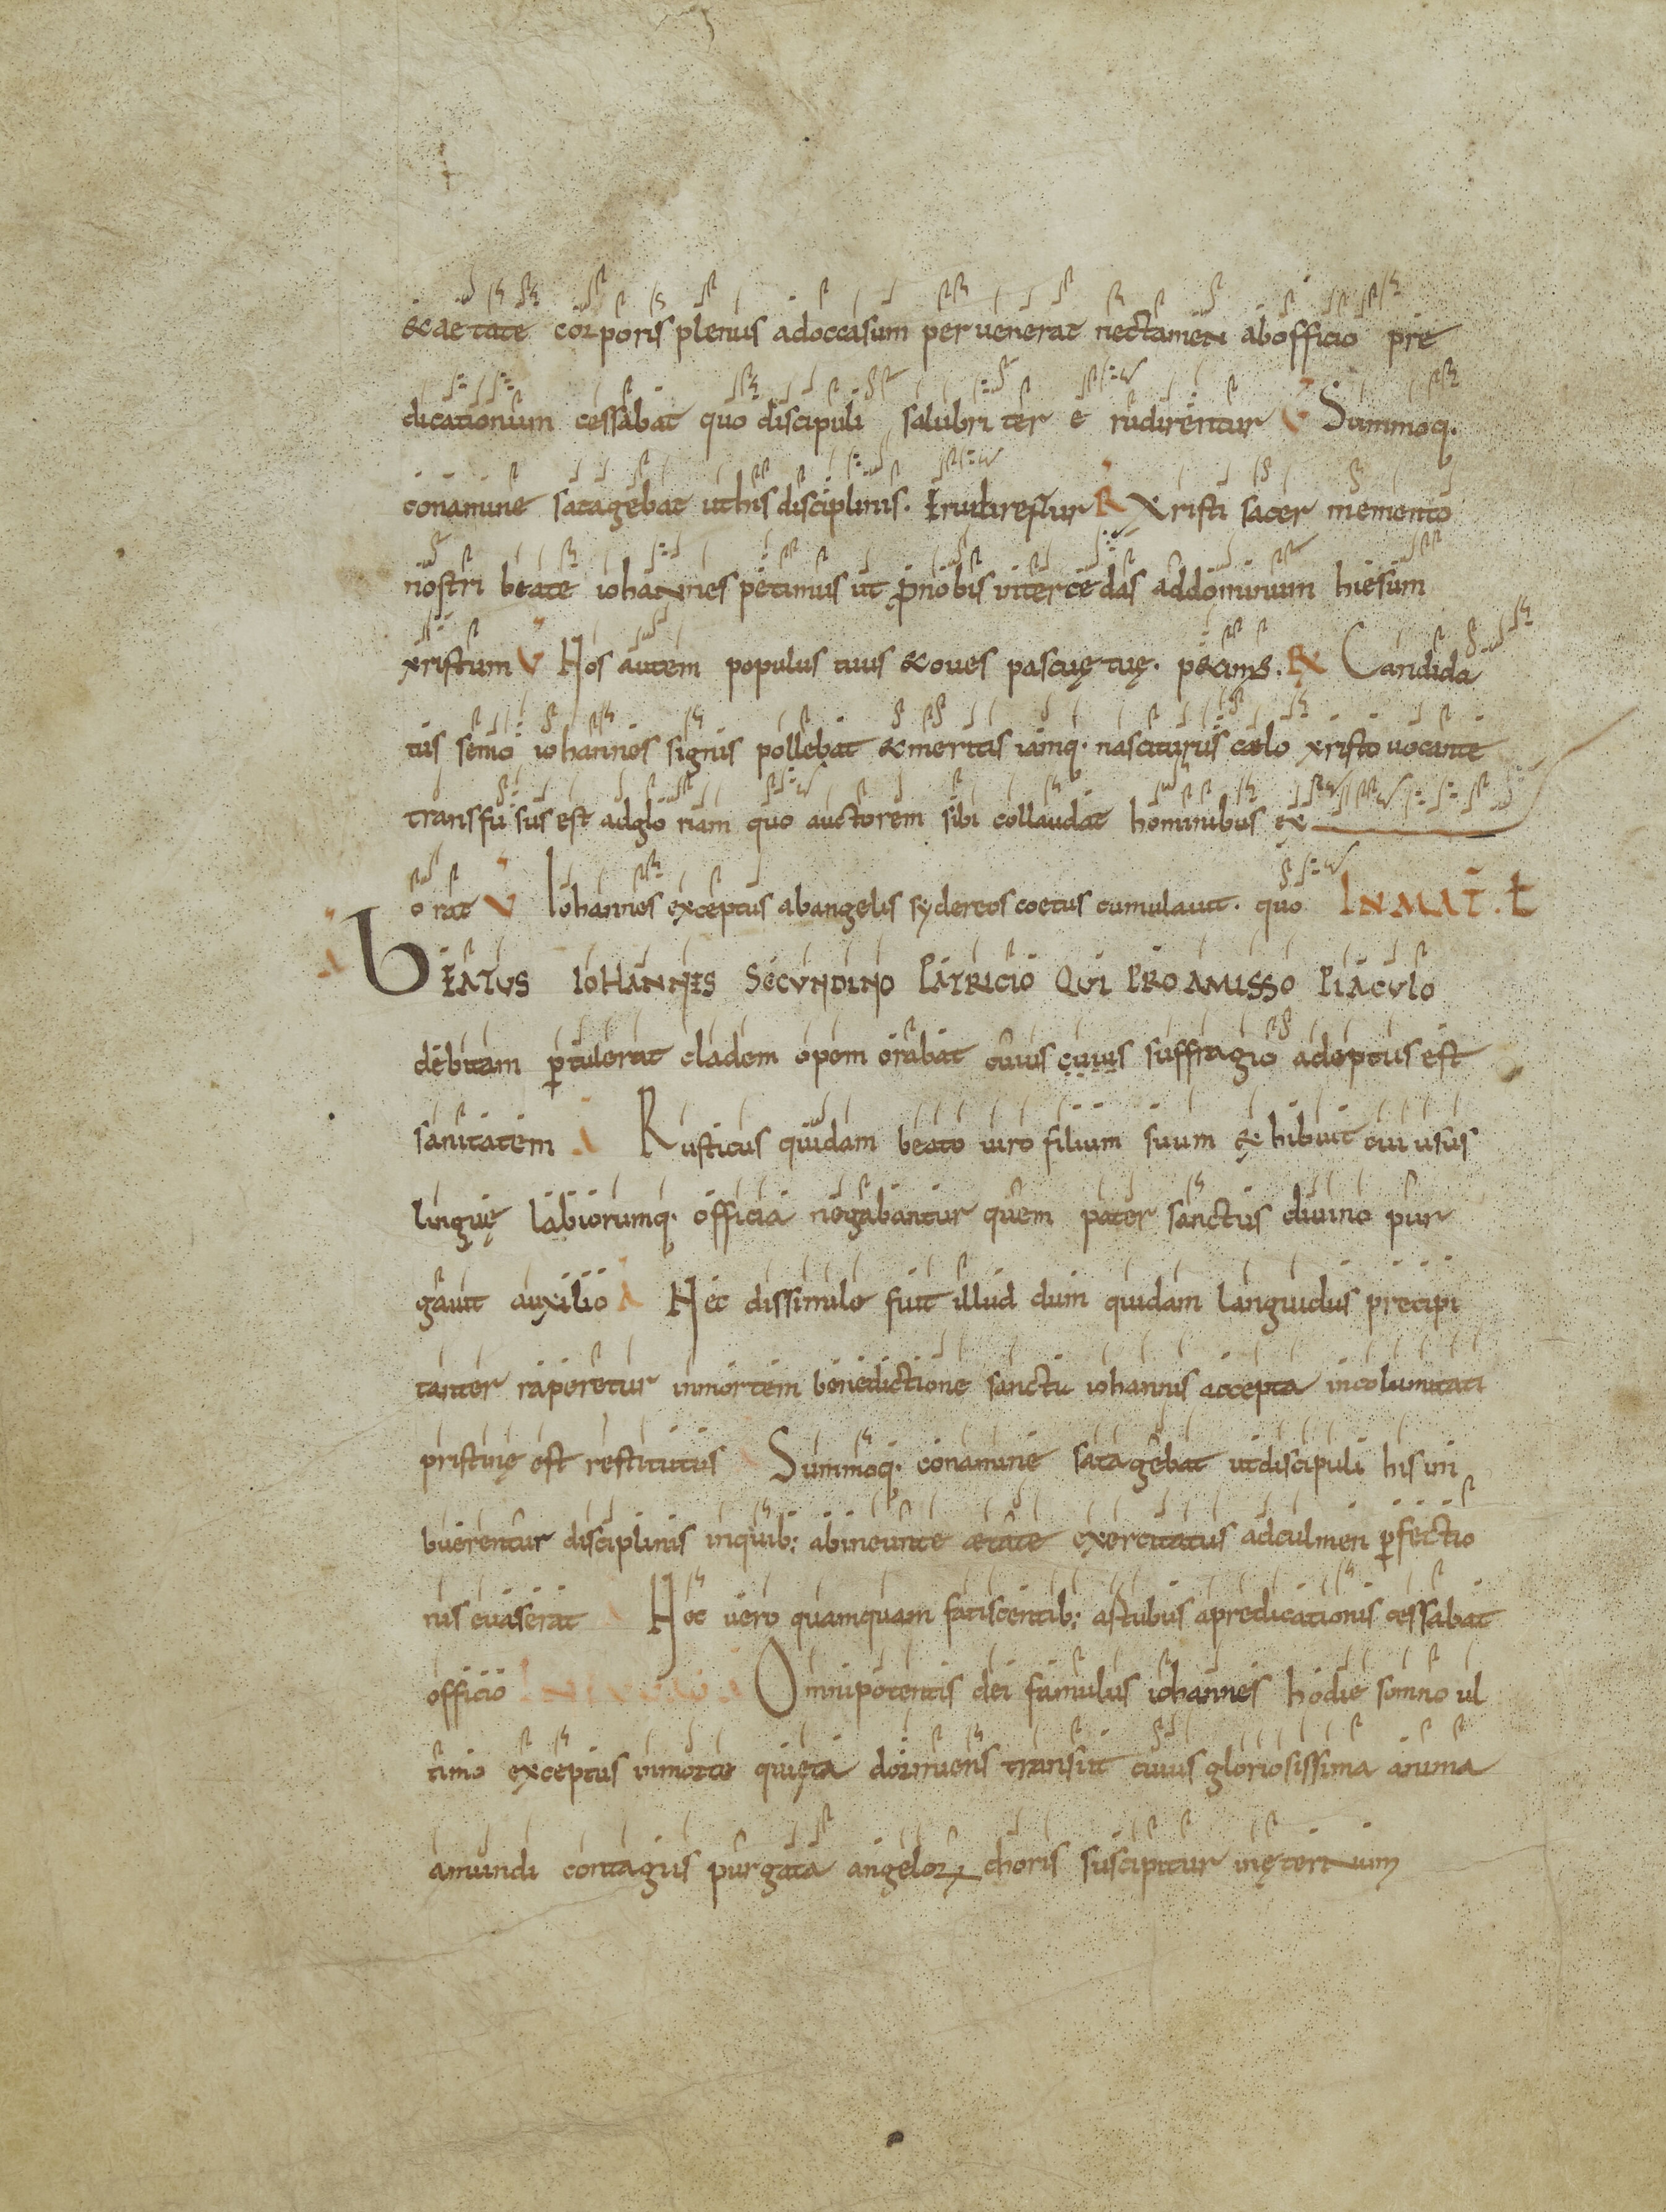 & aetate corporis plenus ad occasum pervenerat nec tamen ab officio pre
dicationum cessabat quo discipuli salubriter erudirentur V Summoq.
conamine satagebat ut his disciplinis. Erudirentur R Xristi sacer memento
nostri beate iohannes petimus ut p nobis intercedas ad dominum hiesum
xristum V Nos autem populus tuus & oues pascuę tuę. petimus. R Candida
tus senio iohannes signis pollebat & meritis iamq. nasciturus cælo xristo uocante
transfusus est ad gloriam quo auctorem sibi collaudat hominibus ex
orat V Iohannes exceptus ab angelis sydereos coetus cumulauit. quo IN MAT. L
A BEATUS IOHANNES SECUNDINO PATRICIO QUI PRO AMISSO PIACULO
debitam ptulerat cladem opem orabat cuius cuius suffragio adeptus est
sanitatem A Rusticus quidam beato uiro filium suum exhibuit cui usus
linguę labiorumq. officia negabantur quem pater sanctus diuino pur
gauit auxilio A Nec dissimile fuit illud dum quidam languidus precipi
tanter raperetur in mortem benedictione sancti iohannis accepta incolumitati
pristinę est restitutus Summoq. conamine satagebat ut discipuli his im
buerentur disciplinis in quib; ab ineunte ætate exercitatus ad culmen pfectio
nis euaserat Nec uero quamquam fatiscentib; astubus a predicationis cessabat
officio Omnipotentis dei famulus iohannes hodie somno ul
timo exceptus in morte quięta dormiens transiit cuius gloriosissima anima
a mundi contagiis purgata angeloꝝ choris suscipitur in ęternum